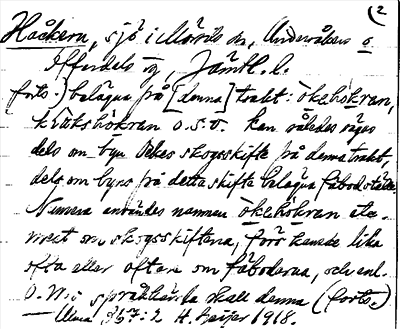 (2
Haåkern, sjö i Mörsils sn, Undersåkers o
Offerdals tg, Jämtl. l.
(forts.) belägna på [denna] trakt: ökehökran,
hökran o.s.v. kan således säges
dels om byn skogsskifte på denna trakt,
dels om byns på detta skifte belägna fäbodställe.
Numera användes namnen ökehökran
mest om skogsskiftena, förökande lika
ofta eller oftare om fäbodarna, och enl.
O.W:s språkkänsla skall denna (forts.)
Uma 357:2 H. Geijer 1918.